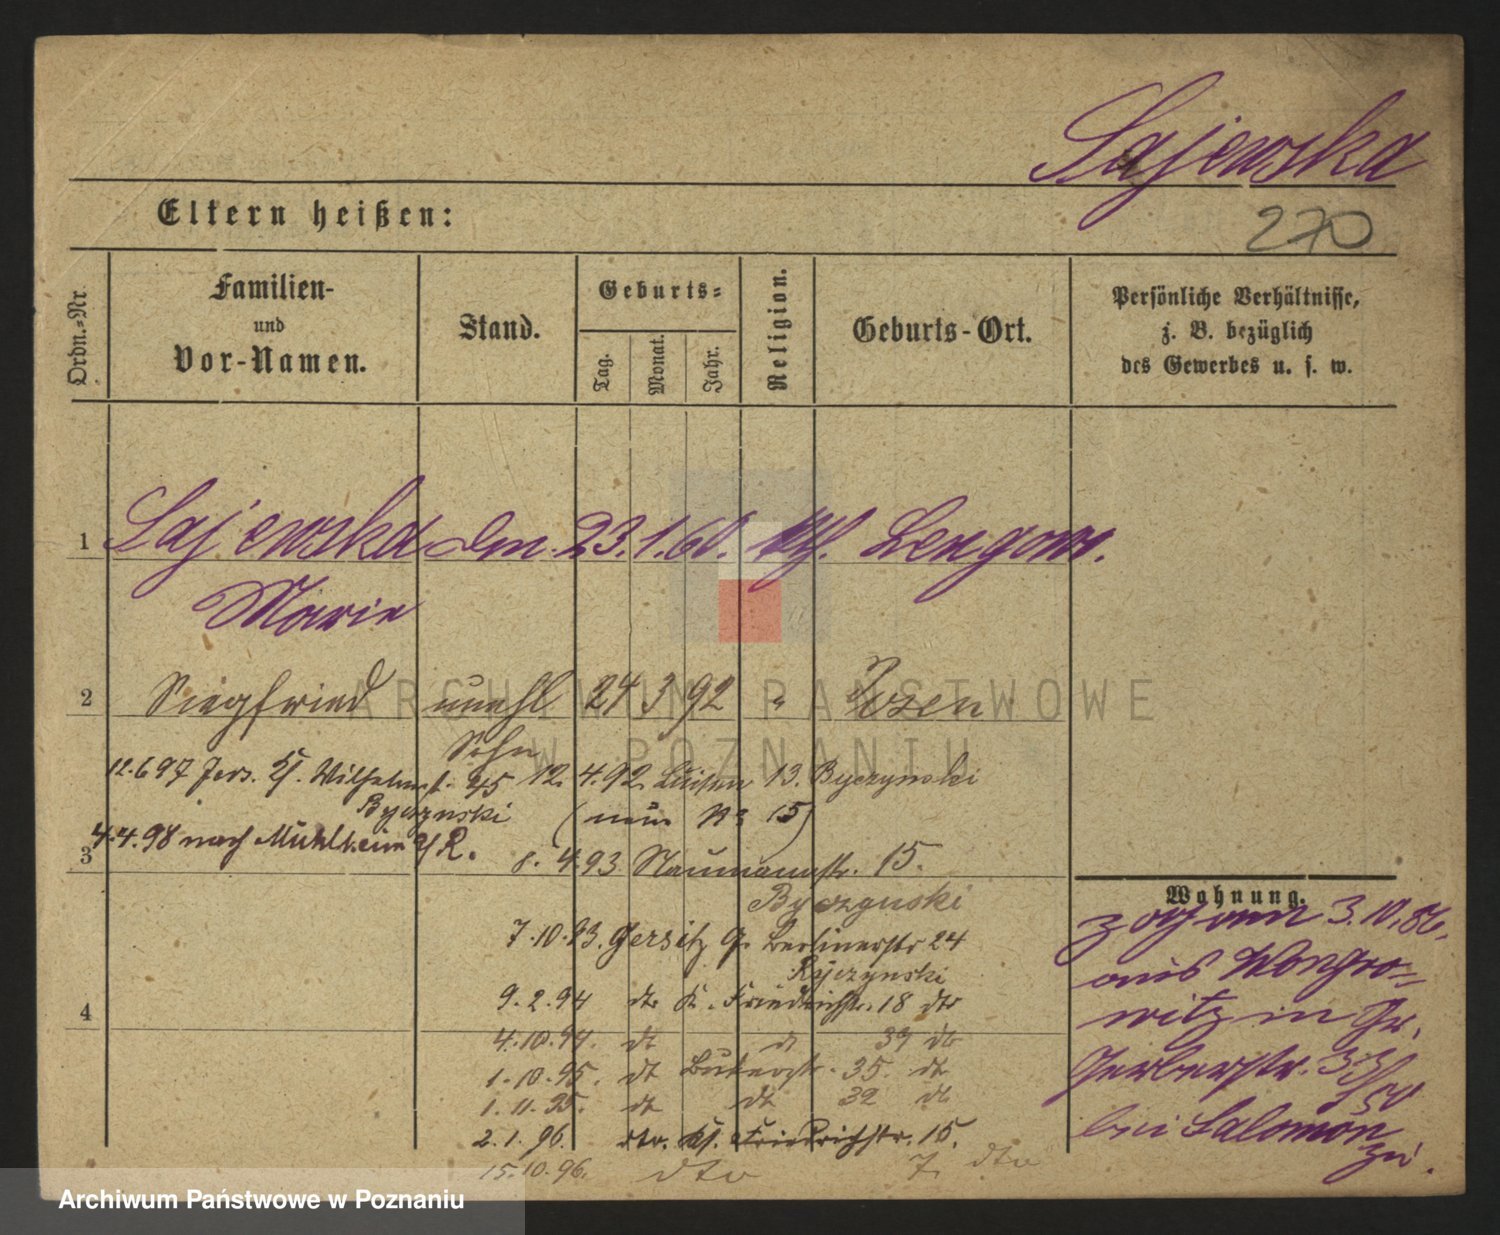 Lajewska
Eltern heißen:
270
Ordn.=Nr.
Familien-
und
Vor-Namen.
Stand.
Geburts=
Tag.
Monat.
Jahr.
Religion.
Geburts-Ort.
Persönliche Verhältnisse,
z. B. bezüglich
des Gewerbes u. s. w.
1 Lajewska 23. 1. 60. kath. Lengow.
Marie
2 Siegfried unehl 24 3 92 " Posen
Sohn
12. 6 97 Jers. Kl. Wilhelmst. 12. 4. 92. 13. Byczynski
Byczynski (neue No 15)
3 4. 4. 98 nach Mühlheim a/R.
8. 4. 93 Naumannstr. 15.
Byczynski
7. 10. 93. Gersitz Gr. Berlinerstr 24
Byczynski
9. 2. 94 dto K. Friedrichstr. 18 dto
4
4. 10. 94. dt dt 39 dto
1. 10. 95. dt 35. dt
1. 11. 95. dt dt 32 dto
2. 1. 96. dto. Kl. Friedrichstr. 15.
15. 10. 96. dto 7. dto
Wohnung.
zog am 3. 10. 86.
aus Wongro=
witz in Gr.
Gerberstr.
bei Salomon
zu.
ARCHIWUM PAŃSTWOWE
W POZNANIU
Archiwum Państwowe w Poznaniu